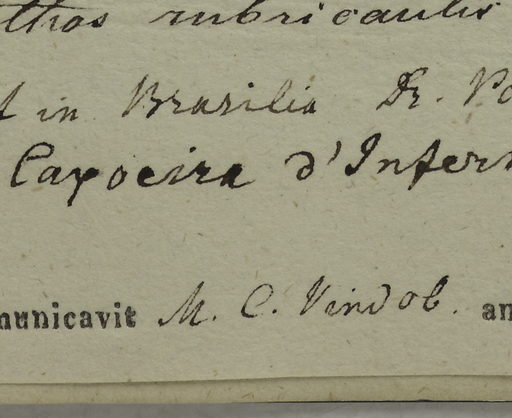 lthos rubricaulis
t in Brasilia Dr. Po
Capoeira d'Infern
municavit M. C. Vindob. an